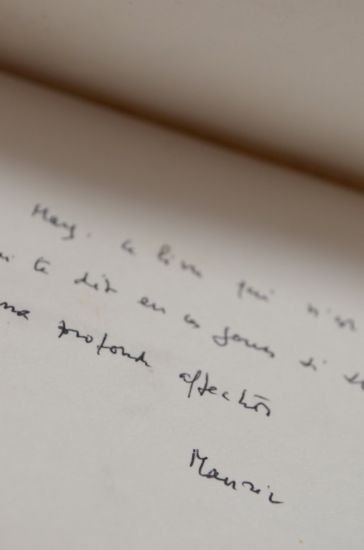 Mary. ce livre qui n'est
te dire en ces jours si
ma profonde affection
Maurice